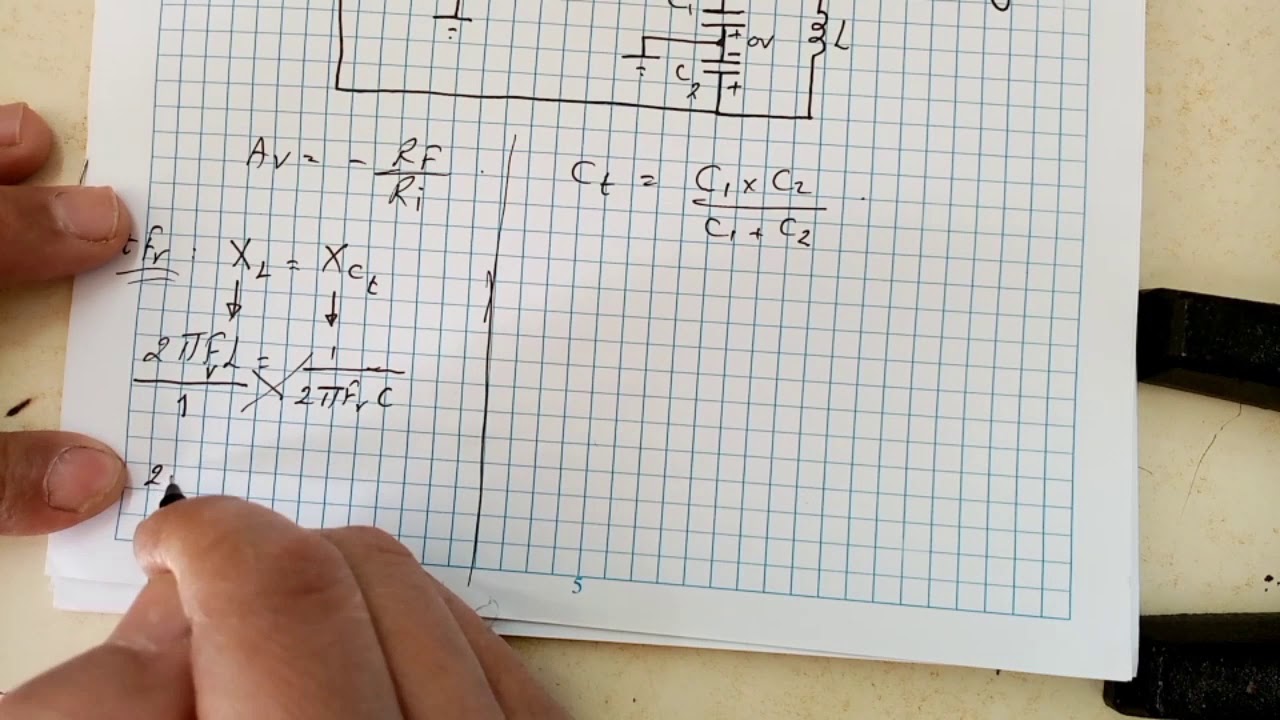 C₁
+ -
0V
L
C₂
+
Av = - RF / Ri
Ct = C₁ x C₂ / C₁ + C₂
fr : XL = XCt
2πFrL / 1 = 1 / 2πFrC
2
5